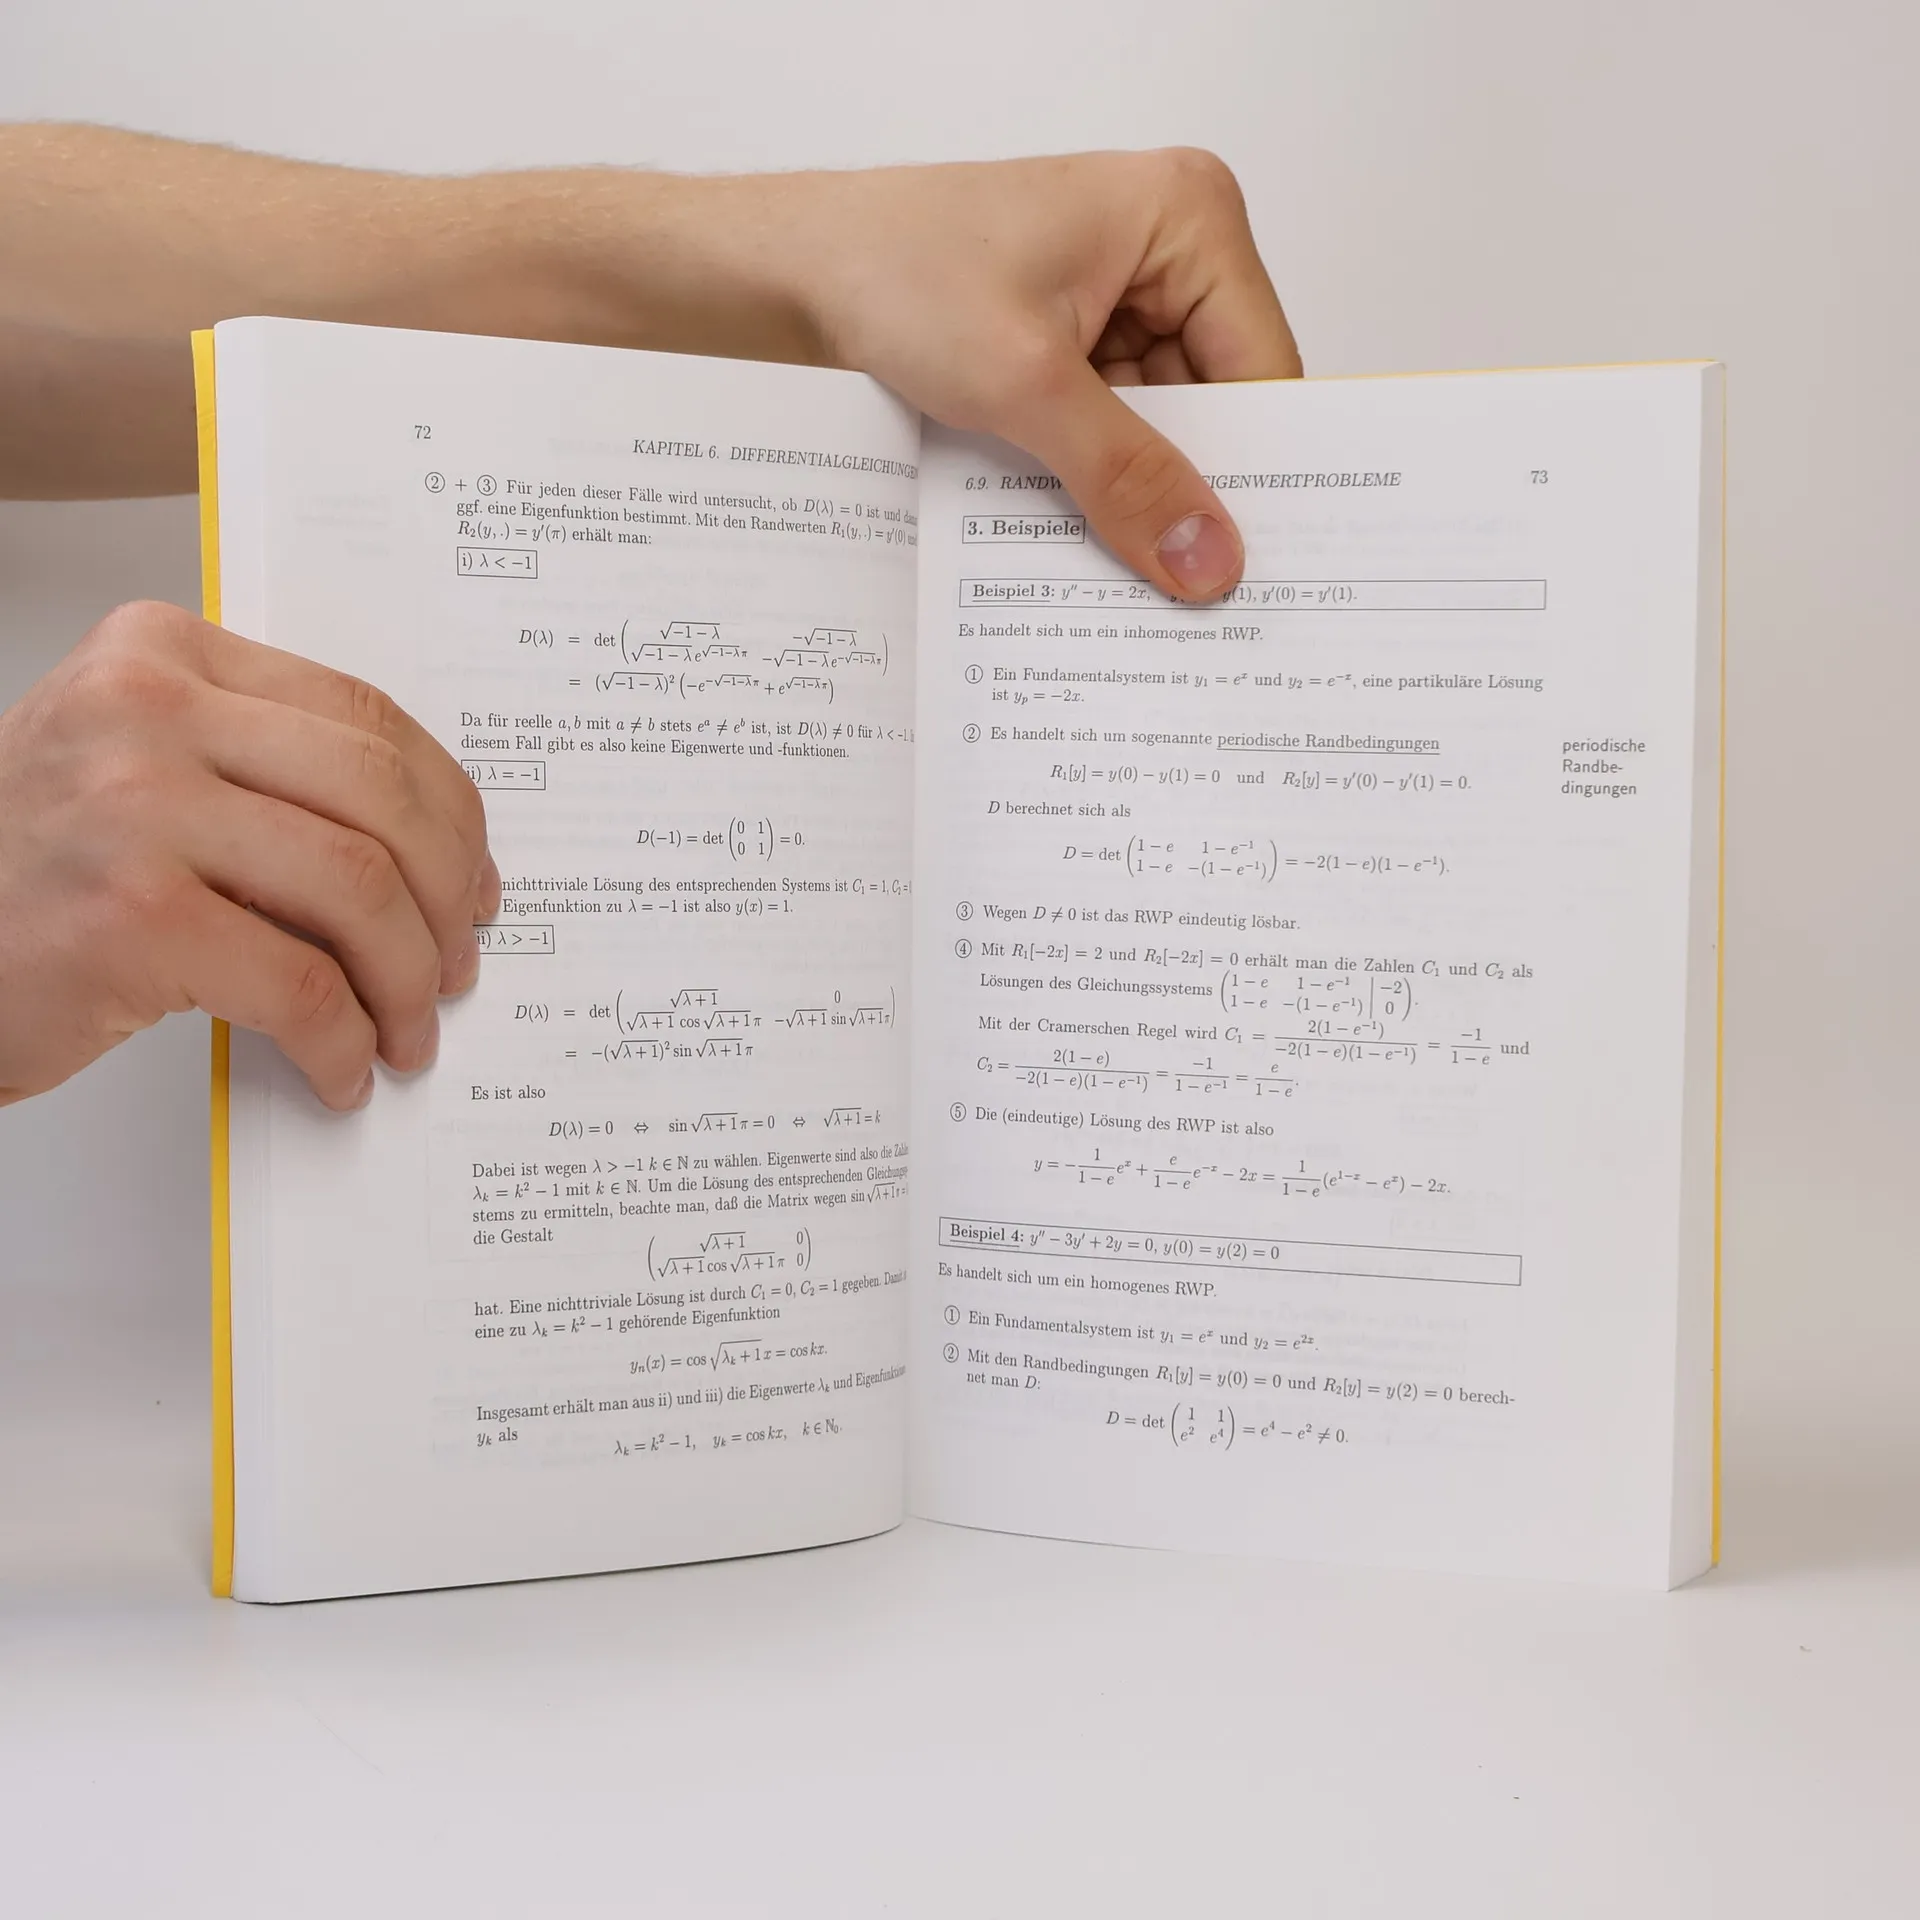 72
KAPITEL 6. DIFFERENTIALGLEICHUNGEN
② + ③ Für jeden dieser Fälle wird untersucht, ob D(λ) = 0 ist und dann
ggf. eine Eigenfunktion bestimmt. Mit den Randwerten R₁(y, .) = y′(0) und
R₂(y, .) = y′(π) erhält man:
i) λ < −1
D(λ) = det ( √−1−λ −√−1−λ
√−1−λ e^{√−1−λ π} −√−1−λ e^{−√−1−λ π} )
= (√−1−λ)² (−e^{−√−1−λ π} + e^{√−1−λ π})
Da für reelle a, b mit a ≠ b stets eᵃ ≠ eᵇ ist, ist D(λ) ≠ 0 für λ < −1.
diesem Fall gibt es also keine Eigenwerte und -funktionen.
ii) λ = −1
D(−1) = det (0 1
0 1) = 0.
nichttriviale Lösung des entsprechenden Systems ist C₁ = 1, C₂ =
Eigenfunktion zu λ = −1 ist also y(x) = 1.
ii) λ > −1
D(λ) = det ( √λ+1 0
√λ+1 cos √λ+1 π −√λ+1 sin √λ+1 π )
= −(√λ+1)² sin √λ+1 π
Es ist also
D(λ) = 0 ⇔ sin √λ+1 π = 0 ⇔ √λ+1 = k
Dabei ist wegen λ > −1 k ∈ ℕ zu wählen. Eigenwerte sind also die Zahlen
λₖ = k² − 1 mit k ∈ ℕ. Um die Lösung des entsprechenden Gleichungssy-
stems zu ermitteln, beachte man, daß die Matrix wegen sin √λ+1 π =
die Gestalt
( √λ+1 0
√λ+1 cos √λ+1 π 0 )
hat. Eine nichttriviale Lösung ist durch C₁ = 0, C₂ = 1 gegeben. Damit
eine zu λₖ = k² − 1 gehörende Eigenfunktion
yₙ(x) = cos √λₖ + 1 x = cos kx.
Insgesamt erhält man aus ii) und iii) die Eigenwerte λₖ und Eigenfunktionen
yₖ als
λₖ = k² − 1, yₖ = cos kx, k ∈ ℕ₀.
6.9. RANDW EIGENWERTPROBLEME 73
3. Beispiele
Beispiel 3: y″ − y = 2x, y(1), y′(0) = y′(1).
Es handelt sich um ein inhomogenes RWP.
① Ein Fundamentalsystem ist y₁ = eˣ und y₂ = e⁻ˣ, eine partikuläre Lösung
ist yₚ = −2x.
② Es handelt sich um sogenannte periodische Randbedingungen
periodische
Randbe-
dingungen
R₁[y] = y(0) − y(1) = 0 und R₂[y] = y′(0) − y′(1) = 0.
D berechnet sich als
D = det (1 − e 1 − e⁻¹
1 − e −(1 − e⁻¹)) = −2(1 − e)(1 − e⁻¹).
③ Wegen D ≠ 0 ist das RWP eindeutig lösbar.
④ Mit R₁[−2x] = 2 und R₂[−2x] = 0 erhält man die Zahlen C₁ und C₂ als
Lösungen des Gleichungssystems (1 − e 1 − e⁻¹ | −2
1 − e −(1 − e⁻¹) | 0).
Mit der Cramerschen Regel wird C₁ = 2(1 − e⁻¹) / −2(1 − e)(1 − e⁻¹) = −1 / 1 − e und
C₂ = 2(1 − e) / −2(1 − e)(1 − e⁻¹) = −1 / 1 − e⁻¹ = e / 1 − e.
⑤ Die (eindeutige) Lösung des RWP ist also
y = − 1 / 1 − e eˣ + e / 1 − e e⁻ˣ − 2x = 1 / 1 − e (e¹⁻ˣ − eˣ) − 2x.
Beispiel 4: y″ − 3y′ + 2y = 0, y(0) = y(2) = 0
Es handelt sich um ein homogenes RWP.
① Ein Fundamentalsystem ist y₁ = eˣ und y₂ = e²ˣ.
② Mit den Randbedingungen R₁[y] = y(0) = 0 und R₂[y] = y(2) = 0 berech-
net man D:
D = det (1 1
e² e⁴) = e⁴ − e² ≠ 0.